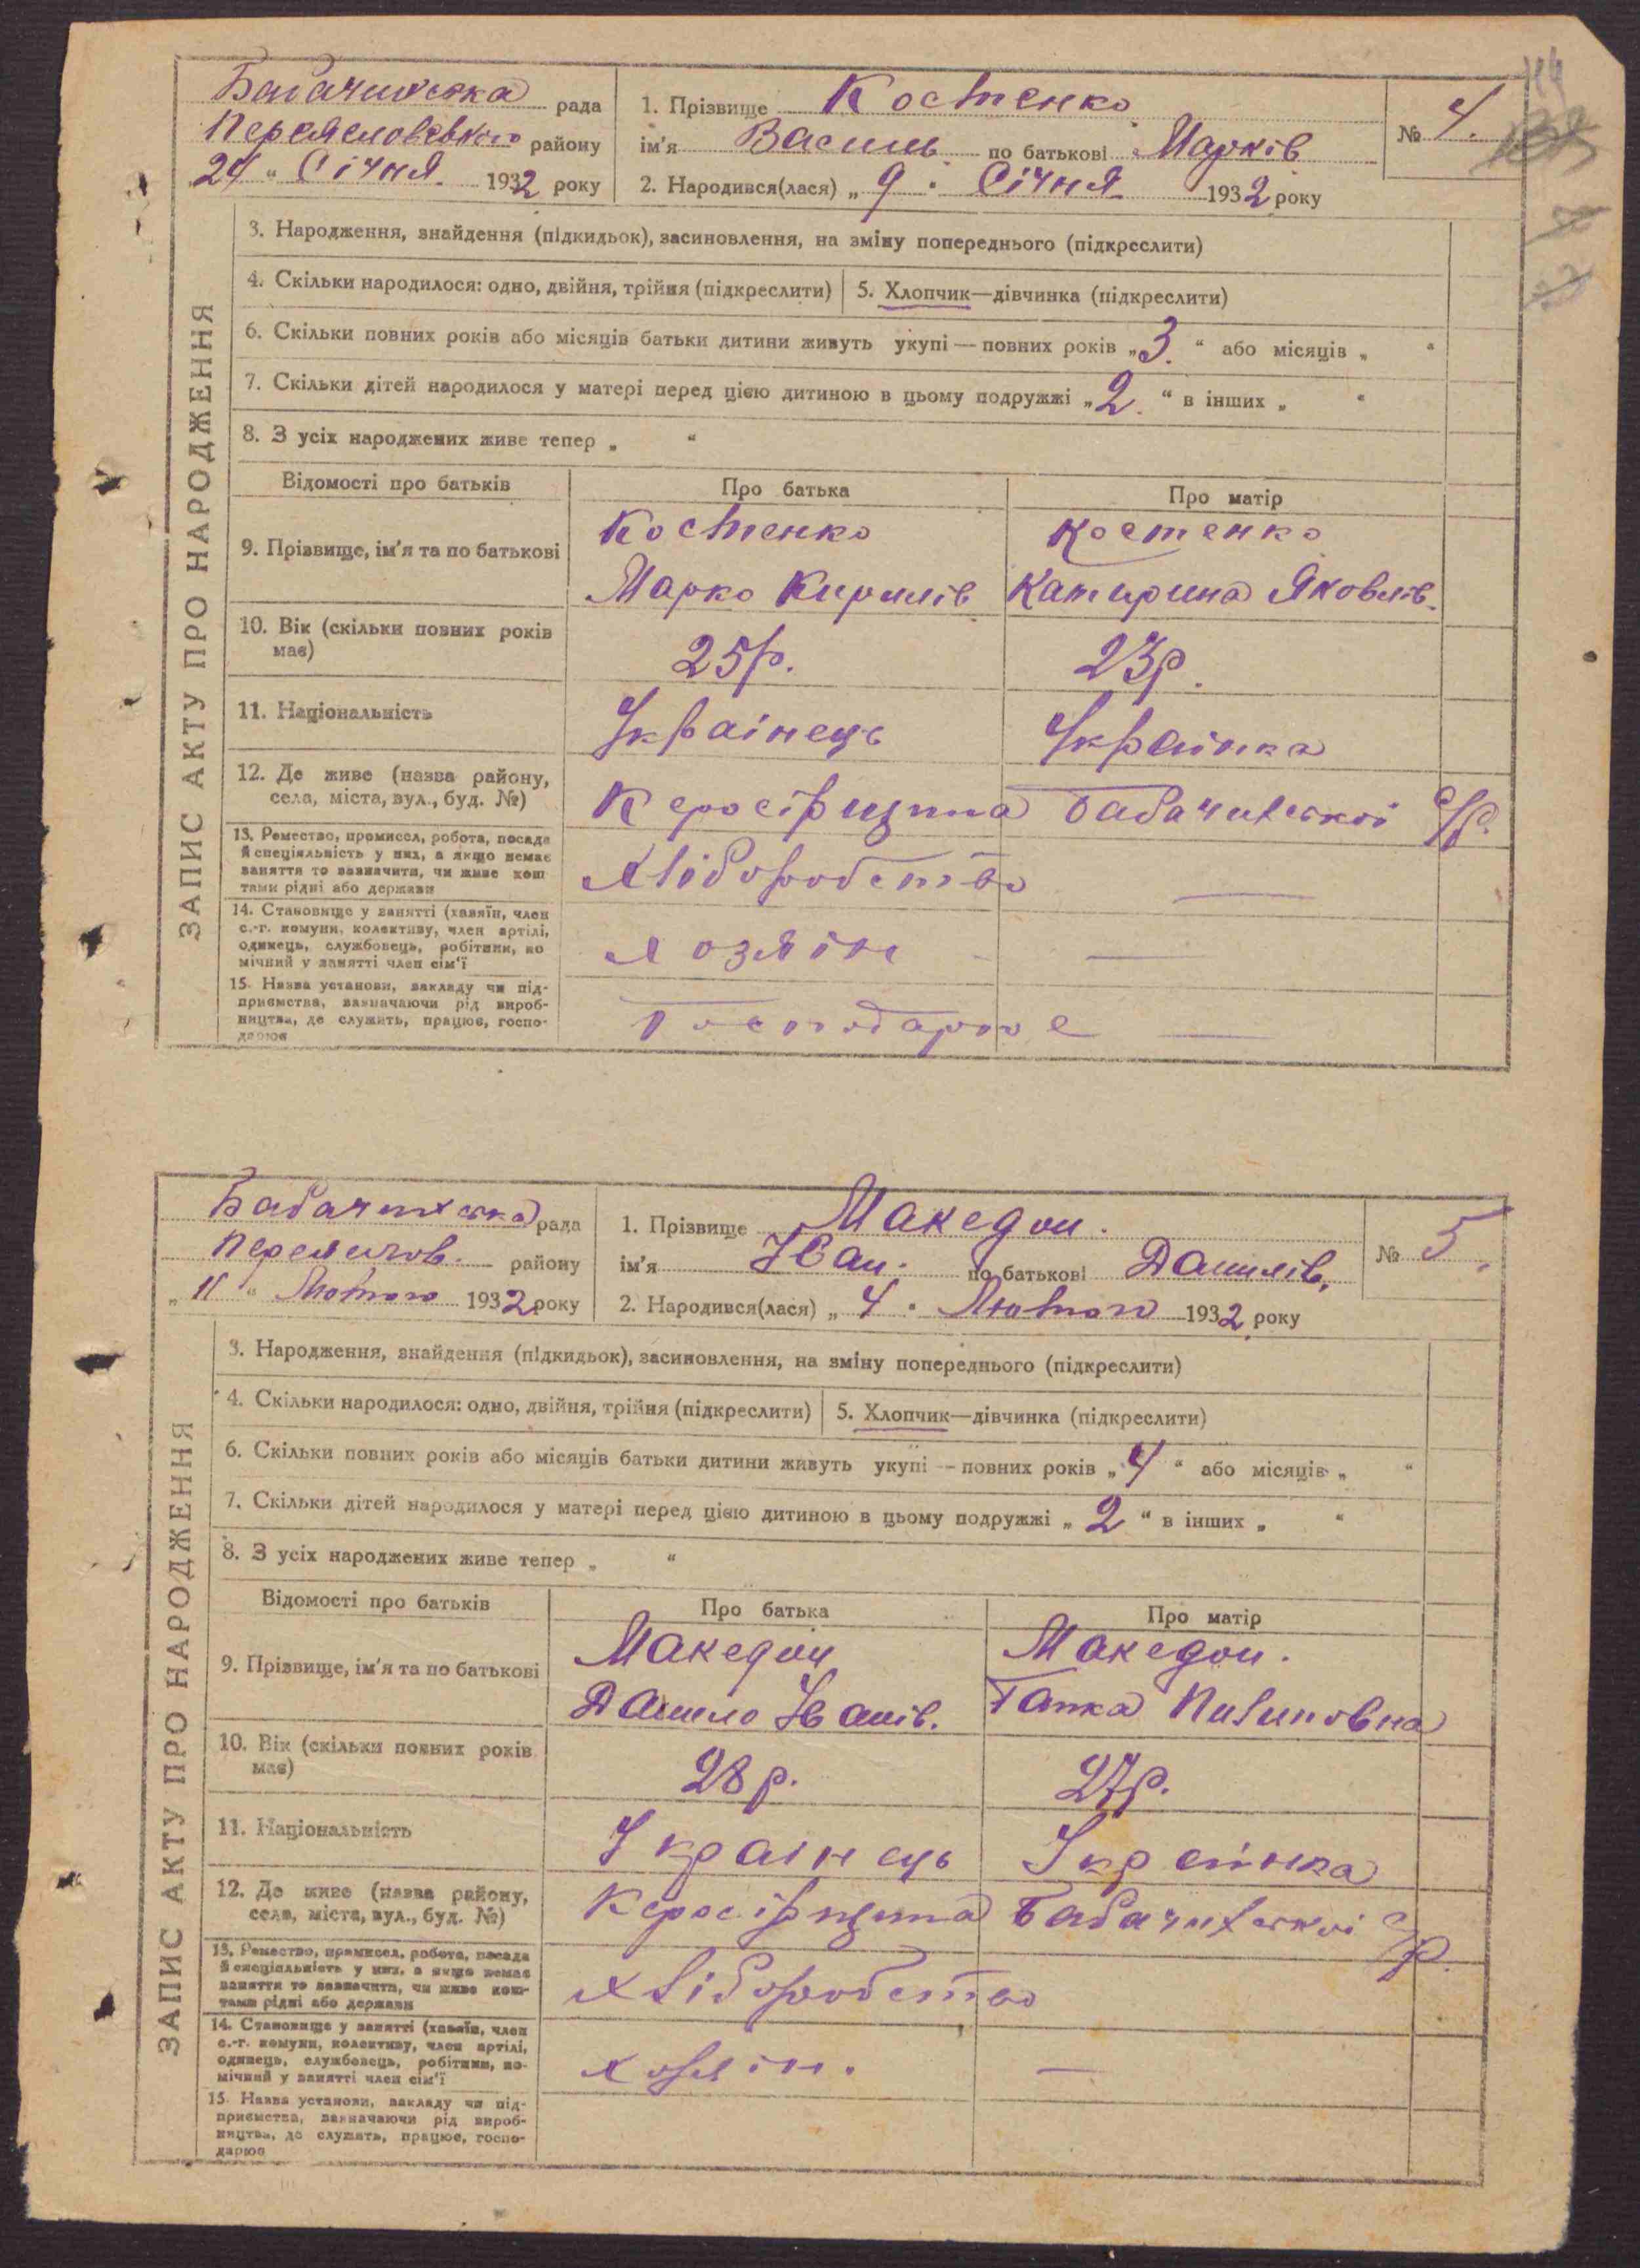 Бабачихська рада
Переяславського району
24 " Січня 1932 року
1. Прізвище Костенко
ім'я Василь по батькові Марків
2. Народився(лася) „ 9 " Січня 1932 року
№ 4.
ЗАПИС АКТУ ПРО НАРОДЖЕННЯ
3. Народження, знайдення (підкидьок), засиновлення, на зміну попереднього (підкреслити)
4. Скільки народилося: одно, двійня, трійня (підкреслити) 5. Хлопчик—дівчинка (підкреслити)
6. Скільки повних років або місяців батьки дитини живуть укупі — повних років „3." або місяців „ "
7. Скільки дітей народилося у матері перед цією дитиною в цьому подружжі „2." в інших „ "
8. З усіх народжених живе тепер „ "
Відомості про батьків Про батька Про матір
9. Прізвище, ім'я та по батькові
Костенко Костенко
Марко Кирилів Катирина Яковлів.
10. Вік (скільки повних років має)
25р. 23р.
11. Національність
Українець Українка
12. Де живе (назва району, села, міста, вул., буд. №)
Бабачихської с/р.
13. Ремество, промисел, робота, посада
й спеціяльність у них, а якщо немає
заняття то зазначити, чи живе кош
тами рідні або держави
Хліборобство —
14. Становище у занятті (хазяїн, член
с.-г. комуни, колективу, член артілі,
одинець, службовець, робітник, по
мічний у занятті член сім'ї
хозяін —
15. Назва установи, закладу чи під-
приємства, зазначаючи рід вироб-
ництва, де служить, працює, госпо-
дарює
Господарює —
Бабачихська рада
Переяслов. району
„ 11 " Лютого 1932 року
1. Прізвище Македон.
ім'я Іван. по батькові Данилів.
2. Народився(лася) „ 4 " Лютого 1932 року
№ 5.
ЗАПИС АКТУ ПРО НАРОДЖЕННЯ
3. Народження, знайдення (підкидьок), засиновлення, на зміну попереднього (підкреслити)
4. Скільки народилося: одно, двійня, трійня (підкреслити) 5. Хлопчик—дівчинка (підкреслити)
6. Скільки повних років або місяців батьки дитини живуть укупі — повних років „4" або місяців „ "
7. Скільки дітей народилося у матері перед цією дитиною в цьому подружжі „2" в інших „ "
8. З усіх народжених живе тепер „ "
Відомості про батьків Про батька Про матір
9. Прізвище, ім'я та по батькові
Македон Македон.
Данило Іванів. Ганка
10. Вік (скільки повних років має)
28р. 27р.
11. Національність
Українець Українка
12. Де живе (назва району, села, міста, вул., буд. №)
Бабачихської с/р.
13. Ремество, промисел, робота, посада
й спеціяльність у них, а якщо немає
заняття то зазначити, чи живе кош-
тами рідні або держави
Хліборобство
14. Становище у занятті (хазяїн, член
с.-г. комуни, колективу, член артілі,
одинець, службовець, робітник, по-
мічний у занятті член сім'ї
хозяін. —
15. Назва установи, закладу чи під-
приємства, зазначаючи рід вироб-
ництва, де служить, працює, госпо-
дарює